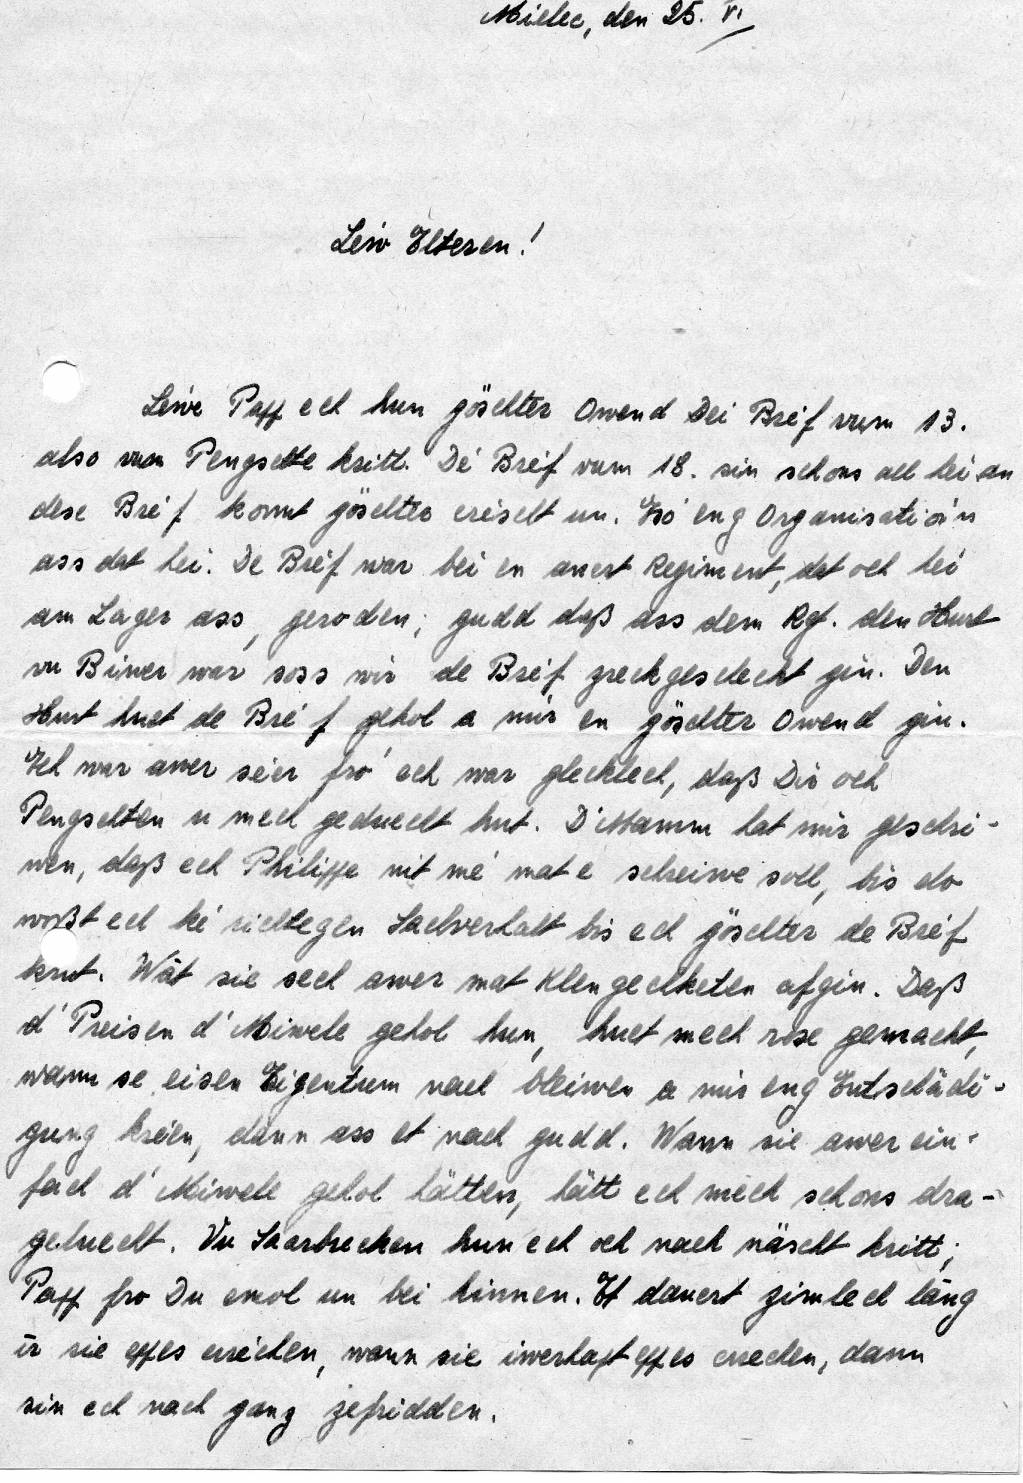 Mielec, den 25. VI
Leiw Elteren!
Leiwe Papp ech hun göschter Owend Dei Bréif vum 13.
also vun Pengschte kritt. De' Breif vum 18. sin schons all hei an
dese Bréif komt göschter eréischt un. Eso' eng Organisatio'n
ass dat hei. De Bréif war bei en anert Regiment, dat och hei
am Lager ass, geroden; gudd daß ass dem Rgt. den Hurt
vu Biwer war soss wir de Bréif zreckgeschecht gin. Den
Hurt huet de Bréif geholl a mir en göschter Owend gin.
Ech war awer séier fro' ech war glecklech, daß Dir och
Pengschten u mech geduecht hut. D'Mamm hat mir geschri-
wen, daß ech Philippe nit mé mat e schreiwe soll, bis do
woßt ech ké richtegen Sachverhalt bis ech göschter de Bréif
krut. Wât sie sech awer mat Klengechketen ofgin. Daß
d'Preisen d'Miwele geholl hun, huet mech rose gemacht,
wann se eisen Eigentum nach bleiwen a mir eng Entschädi-
gung kréien, dann ass et nach gudd. Wann sie awer ein-
fach d'Miwele geholl hätten, hätt ech mech schons dra-
geluecht. Vu Saarbrecken hun ech och nach näscht kritt;
Papp fro Du emol un bei hinnen. Et dauert zimlech lâng
ir sie eppes erréchen, wann sie iwerhapt eppes errechen, dann
sin ech nach ganz zefridden.